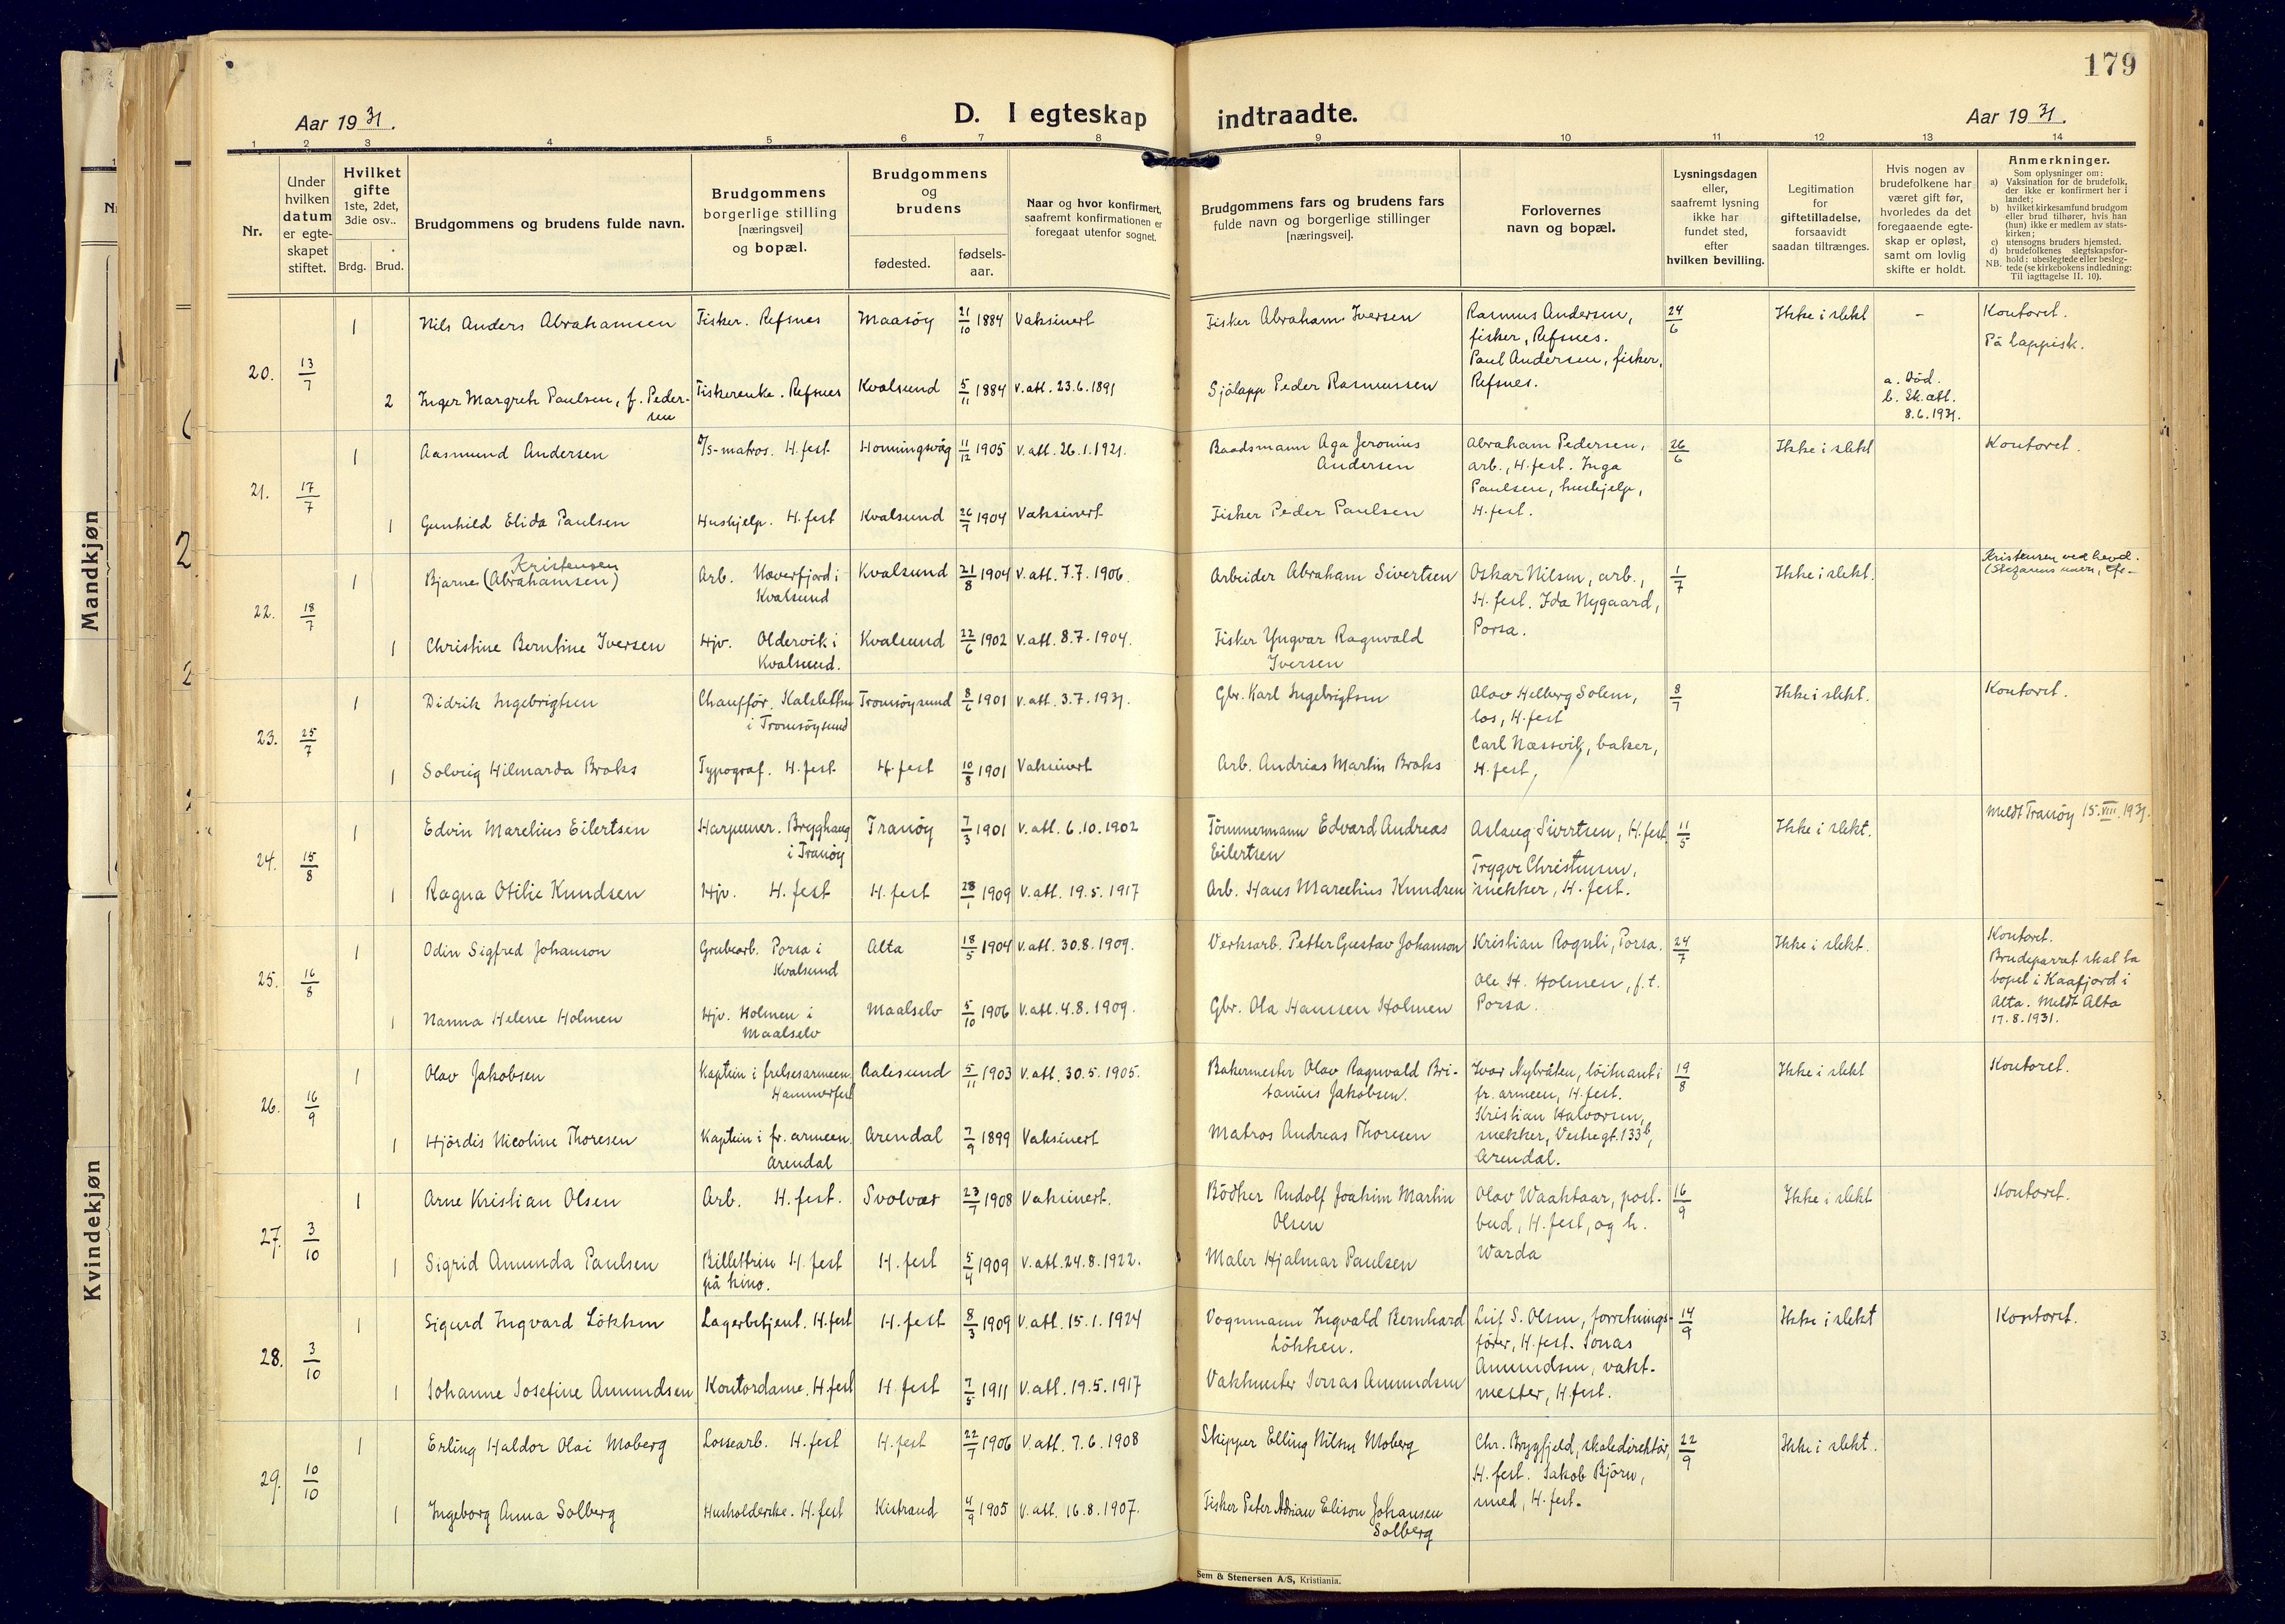 179
Aar 1931.
D. I egteskap indtraadte.
Aar 1931.
1 2 3 4 5 6 7 8 9 10 11 12 13 14
Nr.
Under hvilken datum er egteskapet stiftet.
Hvilket gifte 1ste, 2det, 3die osv..
Brdg. Brud.
Brudgommens og brudens fulde navn.
Brudgommens borgerlige stilling [næringsvei] og bopæl.
Brudgommens og brudens
fødested.
fødselsaar.
Naar og hvor konfirmert, saafremt konfirmationen er foregaat utenfor sognet.
Brudgommens fars og brudens fars fulde navn og borgerlige stillinger [næringsvei].
Forlovernes navn og bopæl.
Lysningsdagen eller, saafremt lysning ikke har fundet sted, efter hvilken bevilling.
Legitimation for giftetilladelse, forsaavidt saadan tiltrænges.
Hvis nogen av brudefolkene har været gift før, hvorledes da det foregaaende egteskap er opløst, samt om lovlig skifte er holdt.
Anmerkninger.
Som oplysninger om:
a) Vaksination for de brudefolk, der ikke er konfirmert her i landet;
b) hvilket kirkesamfund brudgom eller brud tilhører, hvis han (hun) ikke er medlem av statskirken;
c) utensogns bruders hjemsted.
d) brudefolkenes slegtskapsforhold: ubeslegtede eller beslegtede (se kirkebokens indledning: Til iagttagelse II. 10).
NB.
20. 13/7
1 Nils Anders Abrahamsen Fisker. Refsnes Maasöy 21/10 1884 Vaksinert Fisker Abraham Iversen
Rasmus Andersen, fisker, Refsnes. Paul Andersen, fisker, Refsnes.
24/6 Ikke i slekt - Kontoret.
På lappisk.
2 Inger Margreth Paulsen, f. Pedersen Fiskerenke. Refsnes Kvalsund 5/11 1884 V. att. 23.6.1891 Sjölapp Peder Rasmussen
a. Död.
b. Sk.att.
8.6.1931.
21. 17/7
1 Aasmund Andersen D/S-matros. H.fest Honningsvåg 11/12 1905 V. att. 26.1.1921. Baadsmann Aga Jeronius Andersen
Abraham Pedersen, arb., H.fest. Inga Paulsen, hushjelp, H.fest.
26/6 Ikke i slekt Kontoret.
1 Gunhild Elida Paulsen Hushjelp. H.fest Kvalsund 26/7 1904 Vaksinert Fisker Peder Paulsen
22. 18/7
Kristensen
1 Bjarne (Abrahamsen) Arb. Næverfjord i Kvalsund Kvalsund 21/8 1904 V. att. 7.7.1906. Arbeider Abraham Sivertsen
Oskar Nilsen, arb., H.fest. Ida Nygaard, Porsa.
1/7 Ikke i slekt. Kristensen ved
1 Christine Berntine Iversen Hjv. Oldervik i Kvalsund. Kvalsund 22/6 1902 V. att. 8.7.1904. Fisker Yngvar Ragnvald Iversen
23. 25/7
1 Didrik Ingebrigtsen Chauffør. i Tromsöysund Tromsöysund 8/6 1901 V. att. 3.7.1931. Gbr. Karl Ingebrigtsen
Olav Helberg Solem, los, H.fest
Carl Næssvik, baker, H.fest,
8/7 Ikke i slekt. Kontoret.
1 Solveig Hilmarda Broks Typograf. H.fest H.fest 10/8 1901 Vaksinert Arb. Andrias Martin Broks
24. 15/8
1 Edvin Marelius Eilertsen Harpuner. Brygghaug i Tranöy Tranöy 7/3 1901 V. att. 6.10.1902 Tömmermann Edvard Andreas Eilertsen
Aslaug Sivertsen, H.fest
Trygve Christensen, snekker, H.fest.
11/5 Ikke i slekt. Meldt Tranöy 15.VIII.1931.
1 Ragna Otilie Knudsen Hjv. H.fest H.fest 28/1 1909 V. att. 19.5.1917 Arb. Hans Marelius Knudsen
25. 16/8
1 Odin Sigfred Johanson Grubearb. Porsa i Kvalsund Alta 18/5 1904 V. att. 30.8.1909. Verksarb. Petter Gustav Johanson
Kristian Rognli, Porsa.
Ole H. Holmen, f.t. Porsa.
24/7 Ikke i slekt. Kontoret.
Brudeparret skal ta bopel i Kaafjord i Alta. Meldt Alta 17.8.1931.
1 Nanna Helene Holmen Hjv. Holmen i Maalselv Maalselv 5/10 1906 V. att. 4.8.1909. Gbr. Ola Hanssen Holmen
26. 16/9
1 Olav Jakobsen Kaptein i frelsesarmeen. Hammerfest Aalesund 5/11 1903 V. att. 30.5.1905. Bakermester Olav Ragnvald Britanius Jakobsen.
Ivar Nybråten, löitnant i fr. armeen, H.fest.
Kristian Halvorsen, snekker, Vestregt. 133b, Arendal.
19/8 Ikke i slekt Kontoret.
1 Hjördis Nicoline Thoresen Kaptein i fr. armeen. Arendal Arendal 7/9 1899 Vaksinert Matros Andreas Thoresen
27. 3/10
1 Arne Kristian Olsen Arb. H.fest. Svolvær 23/7 1908 Vaksinert. Bödker Rudolf Joakim Martin Olsen
Olav Waaktaar, postbud, H.fest, og h. Warda
16/9 Ikke i slekt Kontoret.
1 Sigrid Amunda Paulsen Billettrise H.fest på kino. H.fest 5/4 1909 V. att. 24.8.1922. Maler Hjalmar Paulsen
28. 3/10
1 Sigurd Ingvard Lökken Lagerbetjent. H.fest H.fest 8/3 1909 V. att. 15.1.1924 Vognmann Ingvald Bernhard Lökken.
Leif S. Olsen, forretningsförer, H.fest. Jonas Amundsen, vaktmester, H.fest.
14/9 Ikke i slekt Kontoret.
1 Johanne Josefine Amundsen Kontordame. H.fest H.fest 7/5 1911 V. att. 19.5.1917 Vaktmester Jonas Amundsen
29. 10/10
1 Erling Haldor Olai Moberg Lossearb. H.fest H.fest 22/7 1906 V. att. 7.6.1908 Skipper Elling Nilsen Moberg
Chr. Brygfjeld, skoledirektör, H.fest. Jakob Björn, smed, H.fest.
22/9 Ikke i slekt.
1 Ingeborg Anna Solberg Husholderske. H.fest Kistrand 4/9 1905 V. att. 16.8.1907. Fisker Peter Adrian Elison Johansen Solberg
Sem & Stenersen A/S, Kristiania.
Mandkjøn
Kvindekjøn